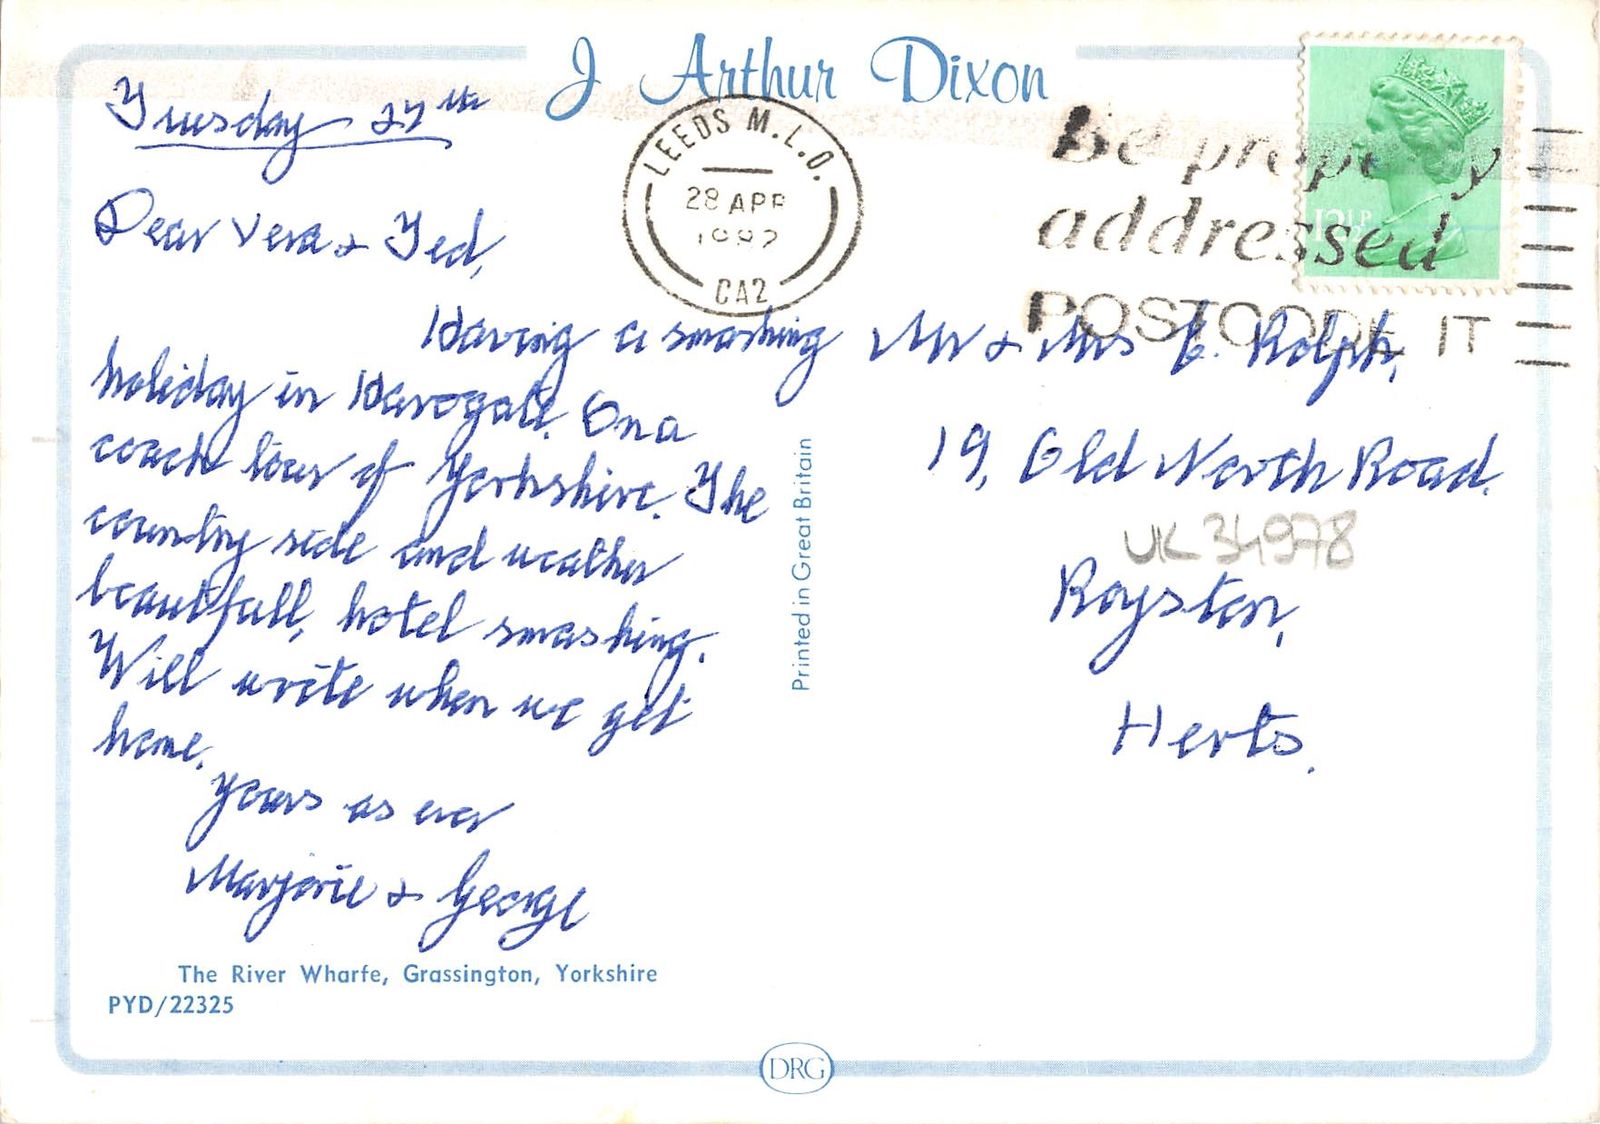 J Arthur Dixon
Tuesday 27th
Dear Vera & Ted,
Having a smashing
holiday in Harogate. On a
coach tour of Yorkshire. The
country side and weather
beautifull, hotel smashing.
Will write when we get
home.
Yours as ever
Marjorie & George
The River Wharfe, Grassington, Yorkshire
PYD/22325
Printed in Great Britain
LEEDS M.L.O.
28 APR
1982
CA2
Be properly
addressed
POSTCODE IT
12½P
Mr & Mrs E. Rolph,
19, Old North Road.
UK 34978
Royston,
Herts.
DRG